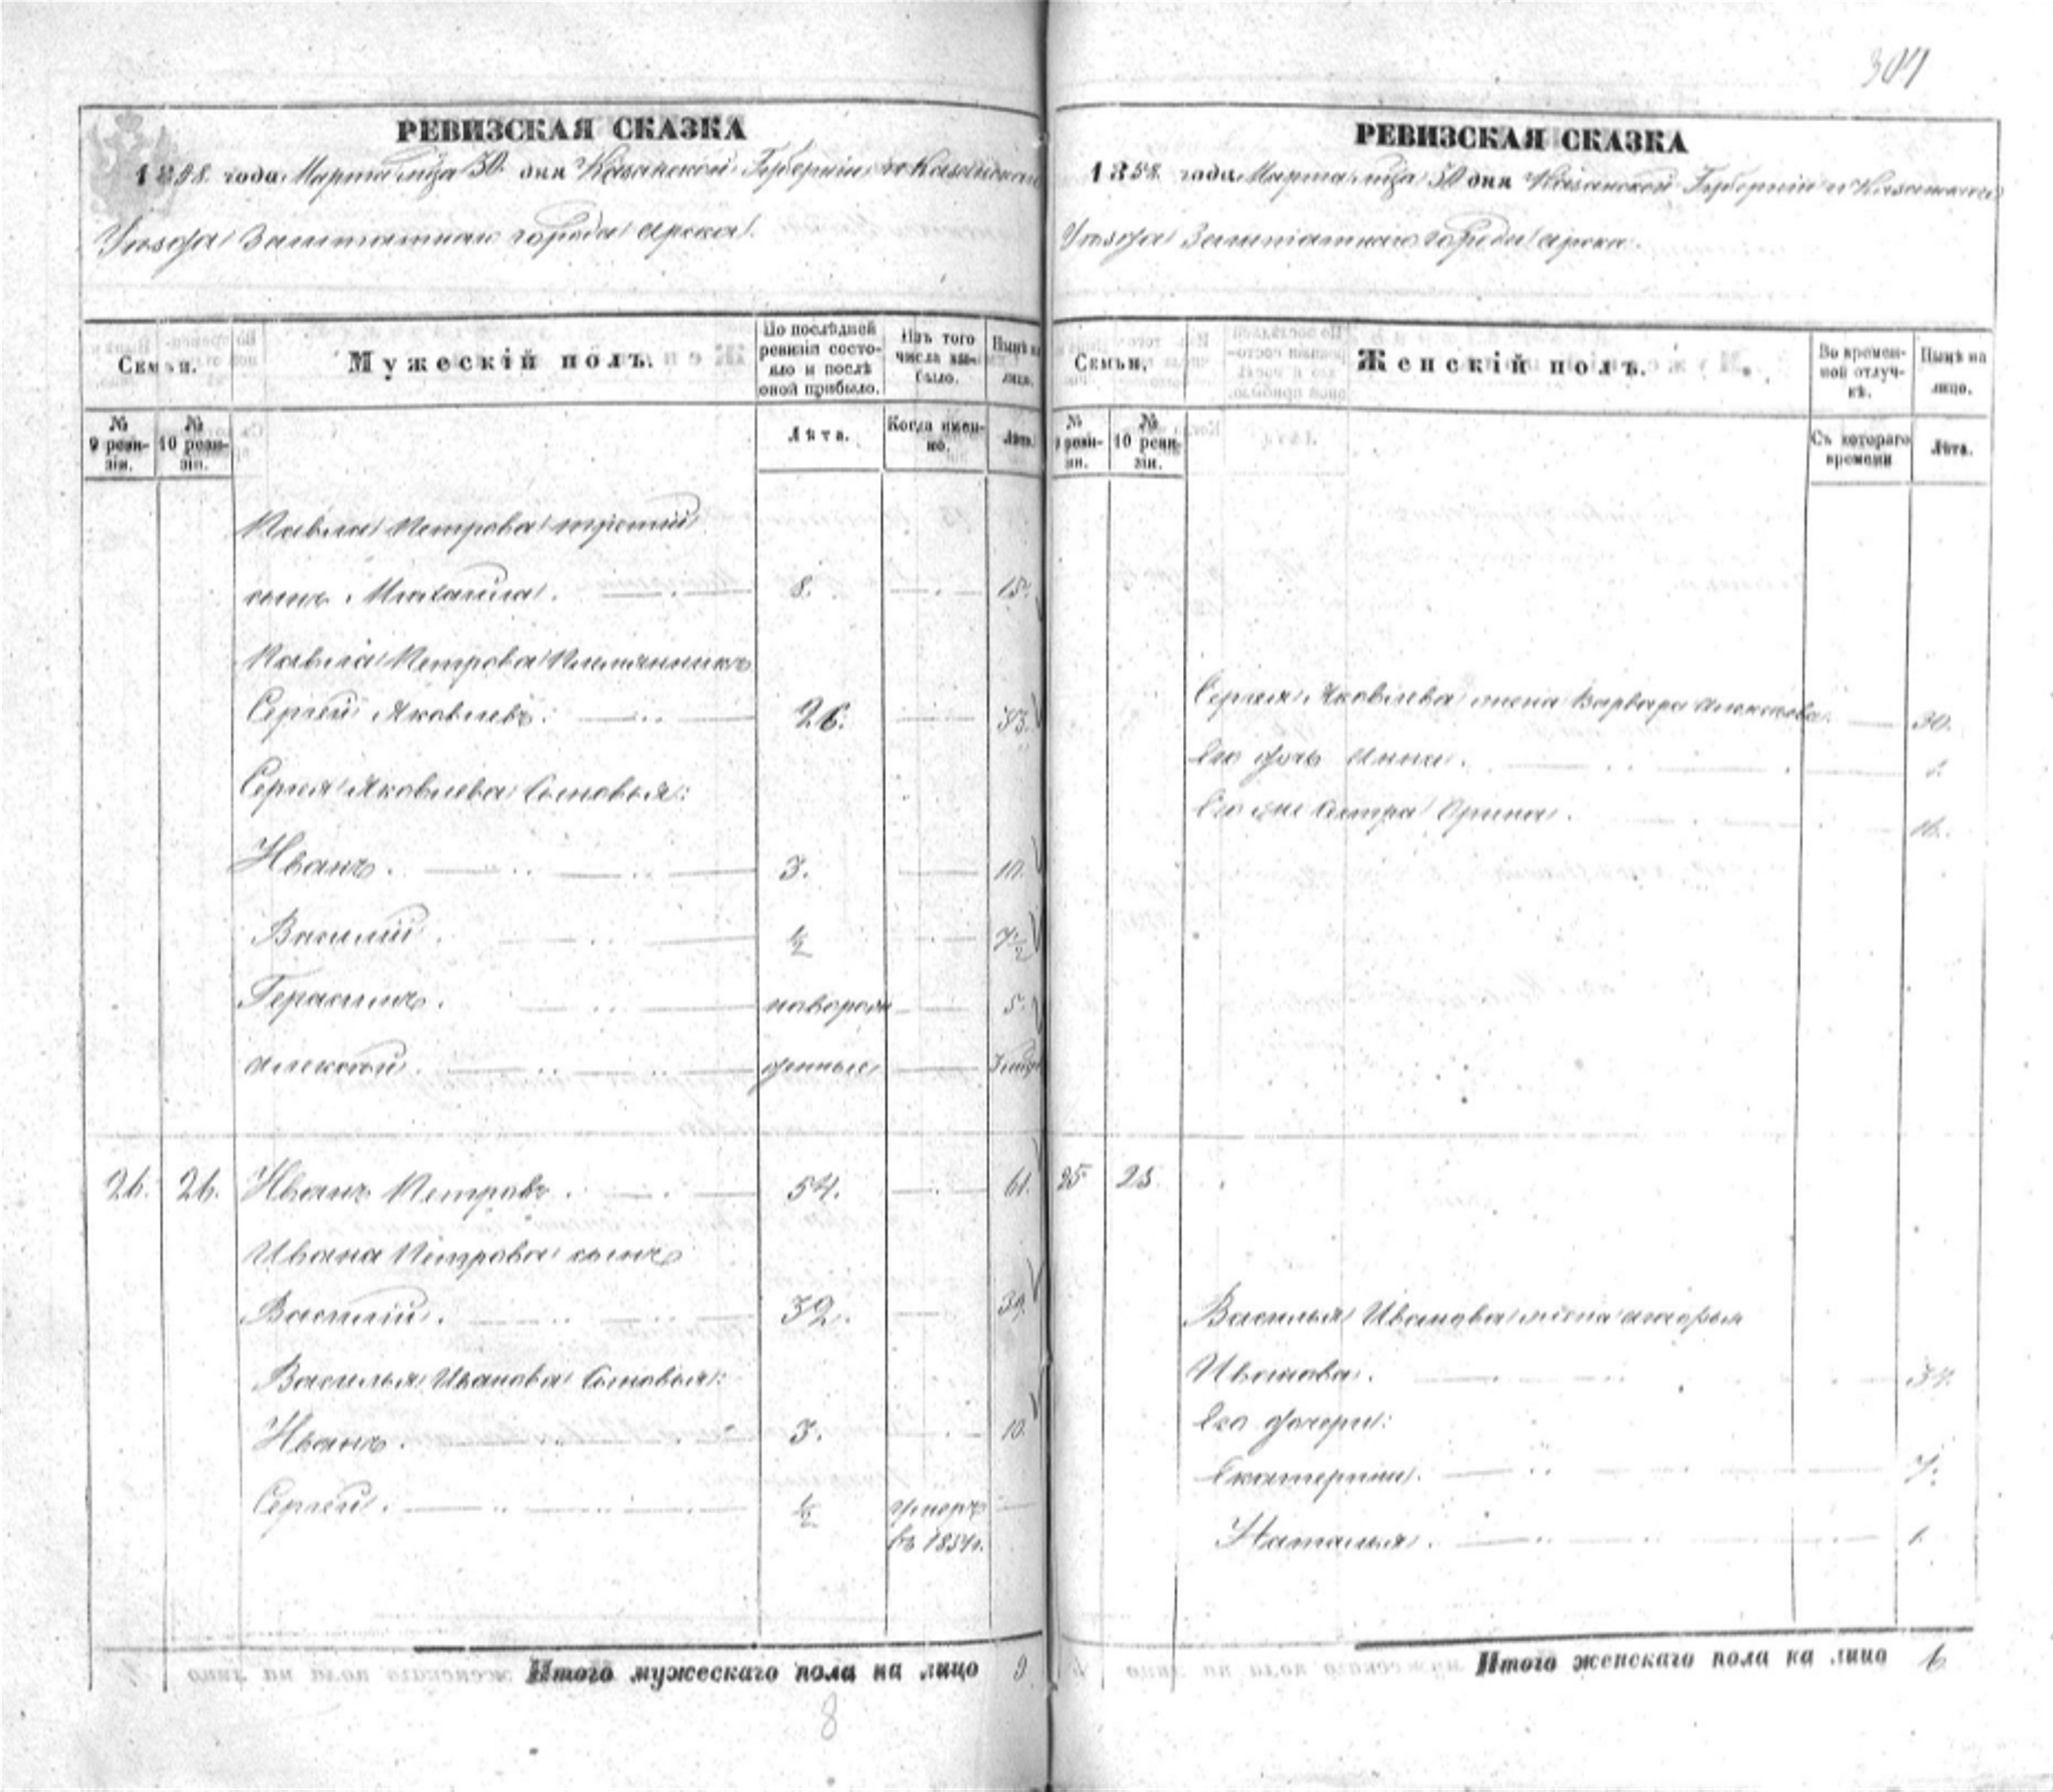 307
РЕВИЗСКАЯ СКАЗКА
1858 года Марта м-ца 30 дня Казанской Губерніи и Казанскаго
Уѣзда Заштатнаго города Арска.
Семьи.
Мужескій полъ.
По послѣдней ревизіи состояло и послѣ оной прибыло.
Изъ того числа выбыло.
Нынѣ на лицо.
№ 9 ревизіи.
№ 10 ревизіи.
Лѣта.
Когда именно.
Лѣта.
Павла Петрова третій
сынъ Михаила. 8. 15.
Павла Петрова Племянникъ
Сергей Яковлевъ. 26. 33.
Сергея Яковлева Сыновья:
Иванъ. 3. 10.
Василій. ½ 7½
Герасимъ. новорож 5.
Алексей. денные
26. 26. Иванъ Петровъ. 54. 61.
Ивана Петрова сынъ
Василій. 32. 39.
Василья Иванова Сыновья:
Иванъ. 3. 10.
Сергей. ½ умеръ
въ 1854 г.
Итого мужескаго пола на лицо 9.
8
РЕВИЗСКАЯ СКАЗКА
1858 года Марта м-ца 30 дня Казанской Губерніи и Казанскаго
Уѣзда Заштатнаго города Арска.
Семьи.
Женскій полъ.
Во временной отлучкѣ.
Нынѣ на лицо.
№ 9 ревизіи.
№ 10 ревизіи.
Съ котораго времени
Лѣта.
Сергея Яковлева жена Варвара Алексеева. 30.
Его дочь Анна. 1.
Его же сестра Арина. 16.
25 25.
Василья Иванова жена
37.
Его дочери:
Екатерина. 7.
Наталья. 1.
Итого женскаго пола на лицо 6